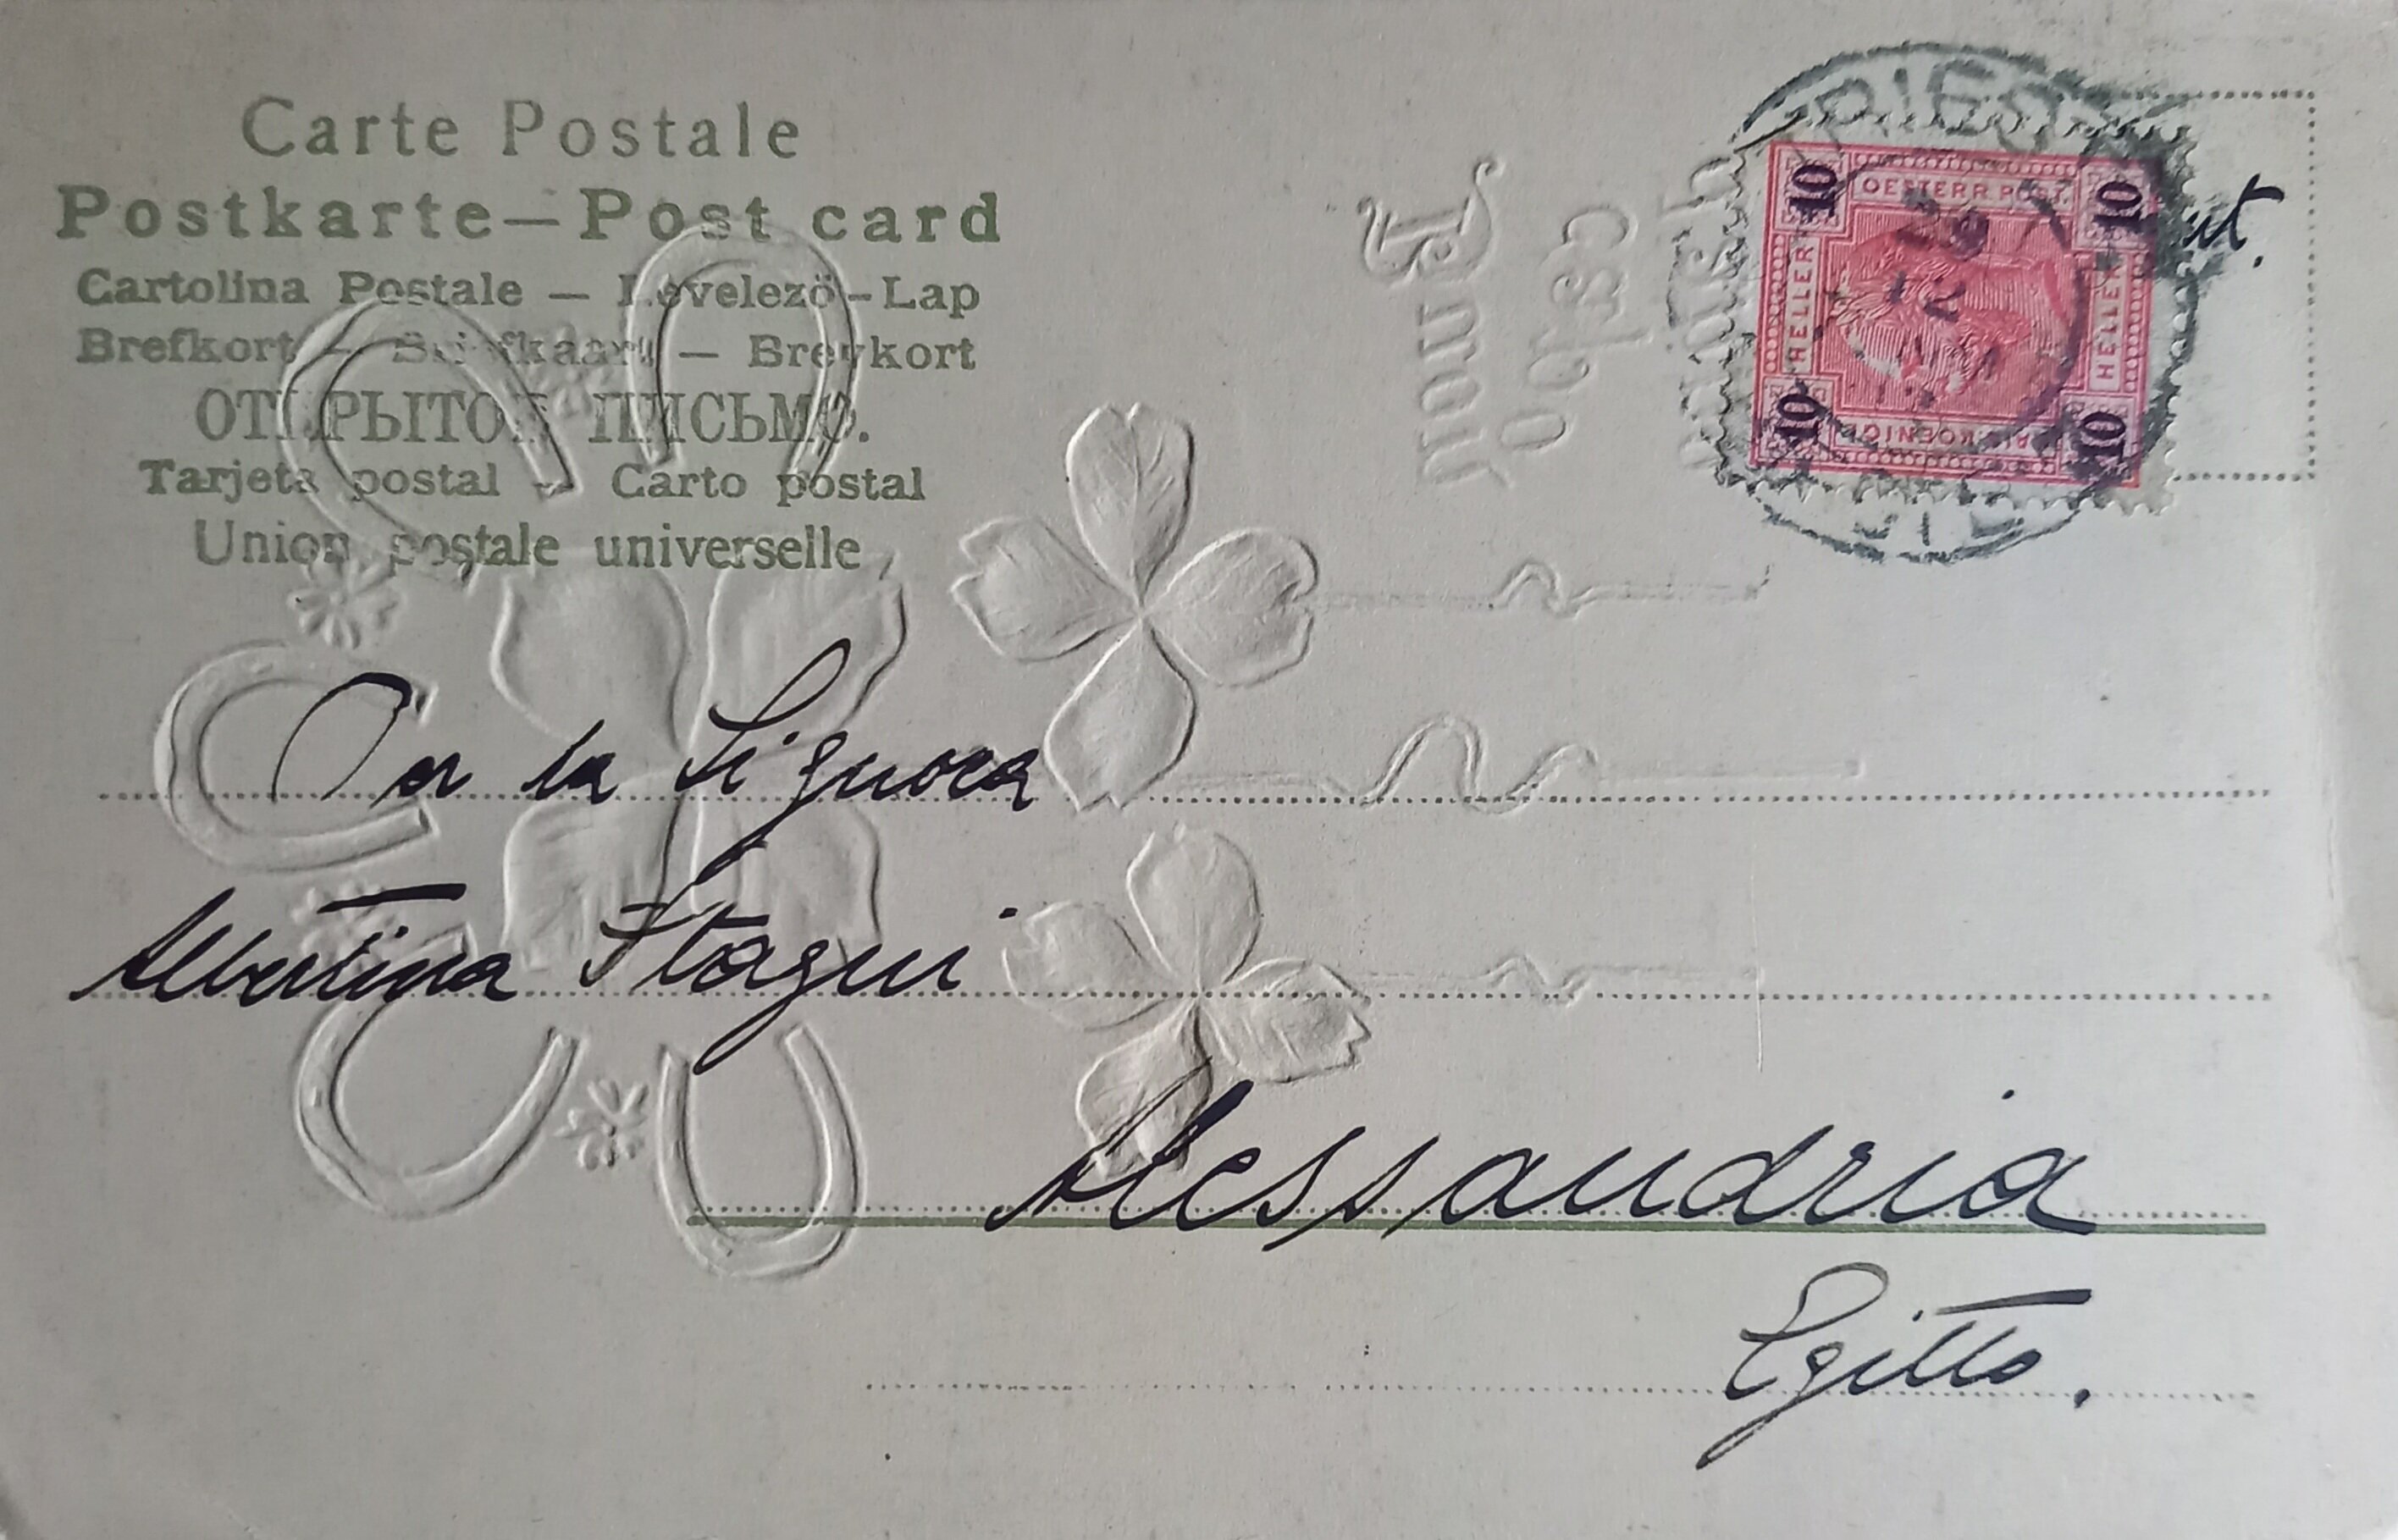 Carte Postale
Postkarte — Post card
Cartolina Postale — Levelező-Lap
Brefkort — Briefkaart — Brevkort
ОТКРЫТОЕ ПИСЬМО.
Tarjeta postal — Carto postal
Union postale universelle
TRIEST
10 OESTERR. POST. 10
HELLER HELLER
10 10
la Signora
Albertina Stagni
Alessandria
Egitto.